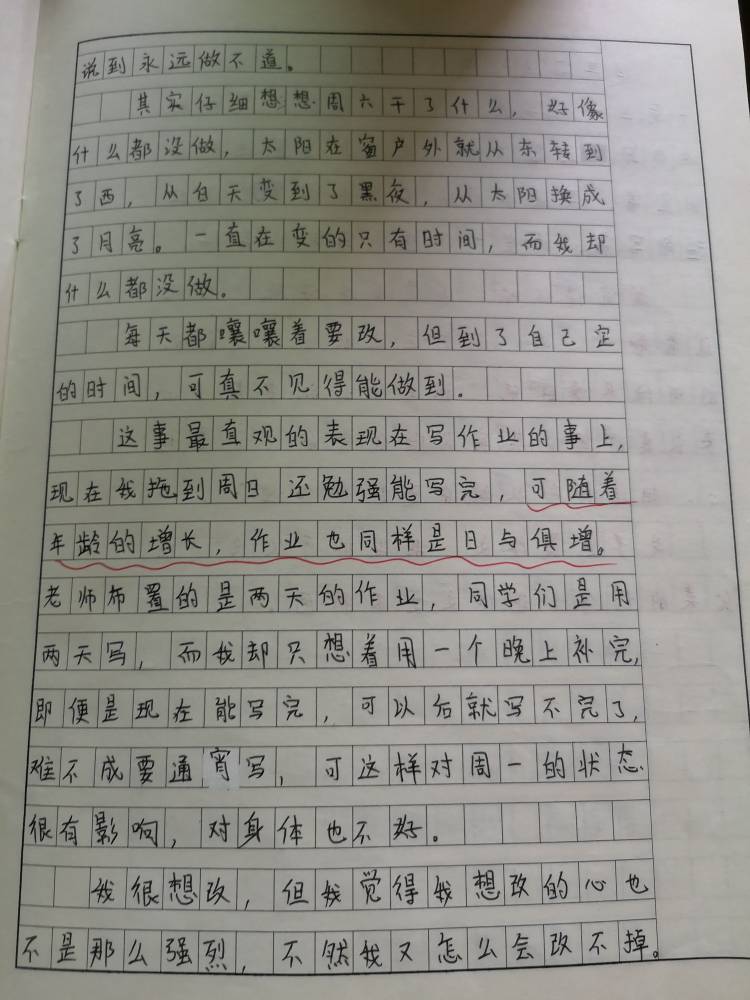 说到永远做不道。
其实仔细想想周六干了什么，好像
什么都没做，太阳在窗户外就从东转到
了西，从白天变到了黑夜，从太阳换成
了月亮。一直在变的只有时间，而我却
什么都没做。
每天都嚷嚷着要改，但到了自己定
的时间，可真不见得能做到.
这事最直观的表现在写作业的事上，
现在我拖到周日还勉强能写完，可随着
年龄的增长，作业也同样是日与俱增。
老师布置的是两天的作业，同学们是用
两天写，而我却只想着用一个晚上补完，
即便是现在能写完，可以后就写不完了，
难不成要通宵写，可这样对周一的状态
很有影响，对身体也不好。
我很想改，但我觉得我想改的心也
不是那么强烈，不然我又怎么会改不掉。